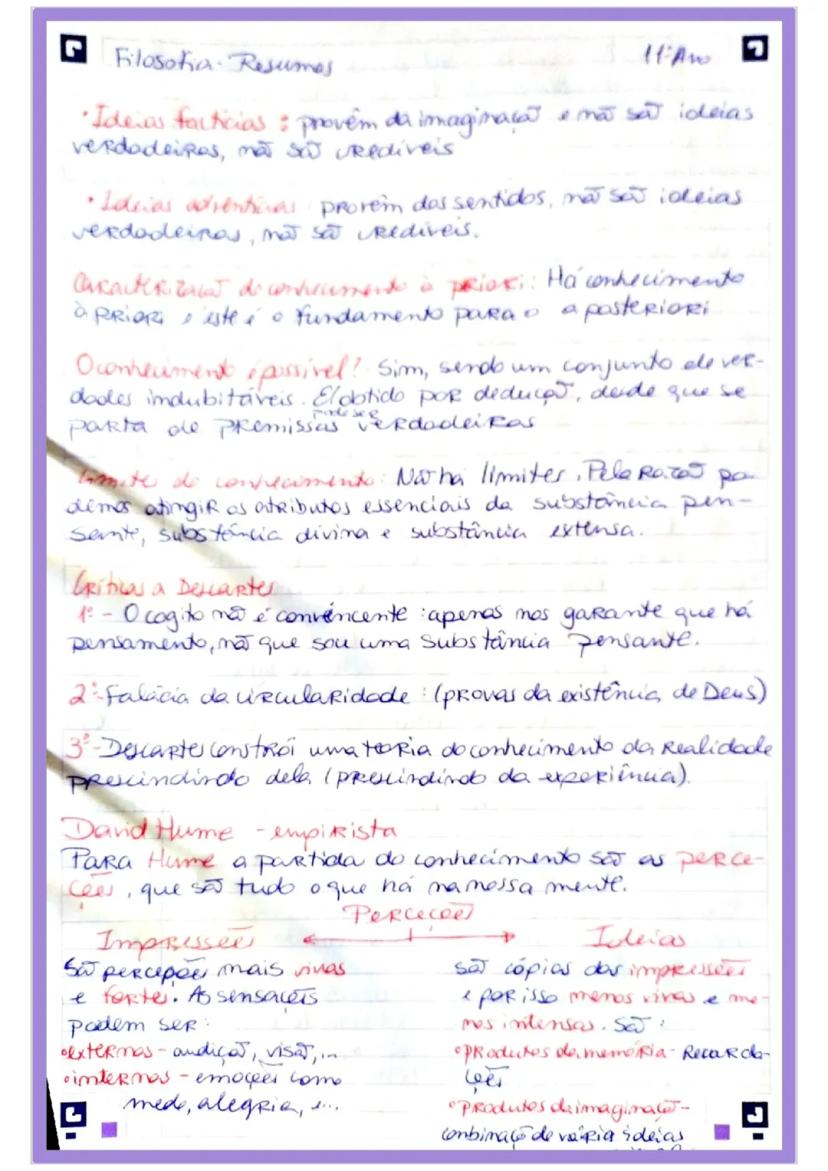 Filosofia - Resumos 11º Ano
• Ideias factícias : provêm da imaginação e não são ideias
verdadeiras, não são crediveis
• Ideias adventícias provêm dos sentidos, não são ideias
verdadeiras, não são crediveis.
Caracterização do conhecimento à priori: Há conhecimento
à priori e este é o fundamento para o a posteriori
O conhecimento é possível? Sim, sendo um conjunto de ver-
dades indubitáveis. E obtido por dedução, desde que se
pode ser
parta de premissas verdadeiras
Limites do conhecimento: Não há limites. Pela Razão po-
demos atingir os atributos essenciais da substância pen-
sante, substância divina e substância extensa.
Críticas a Descartes
1º - O cogito não é convencente : apenas nos garante que há
pensamento, não que sou uma substância pensante.
2º- Falácia da circularidade : (provas da existência de Deus)
3º- Descartes constrói uma teoria do conhecimento da realidade
prescindindo dela (prescindindo da experiência).
David Hume - empirista
Para Hume a partida do conhecimento são as perce-
ções, que são tudo o que há na nossa mente.
Perceções
Impressões
São perceções mais vivas
e fortes. As sensações
podem ser:
• externas - audição, visão, ...
• internas - emoções como
medo, alegria, ...
Ideias
são cópias das impressões
e por isso menos vivas e me-
nos intensas. São :
• produtos da memória - Recorda-
ções
• produtos da imaginação -
combinação de vária ideias